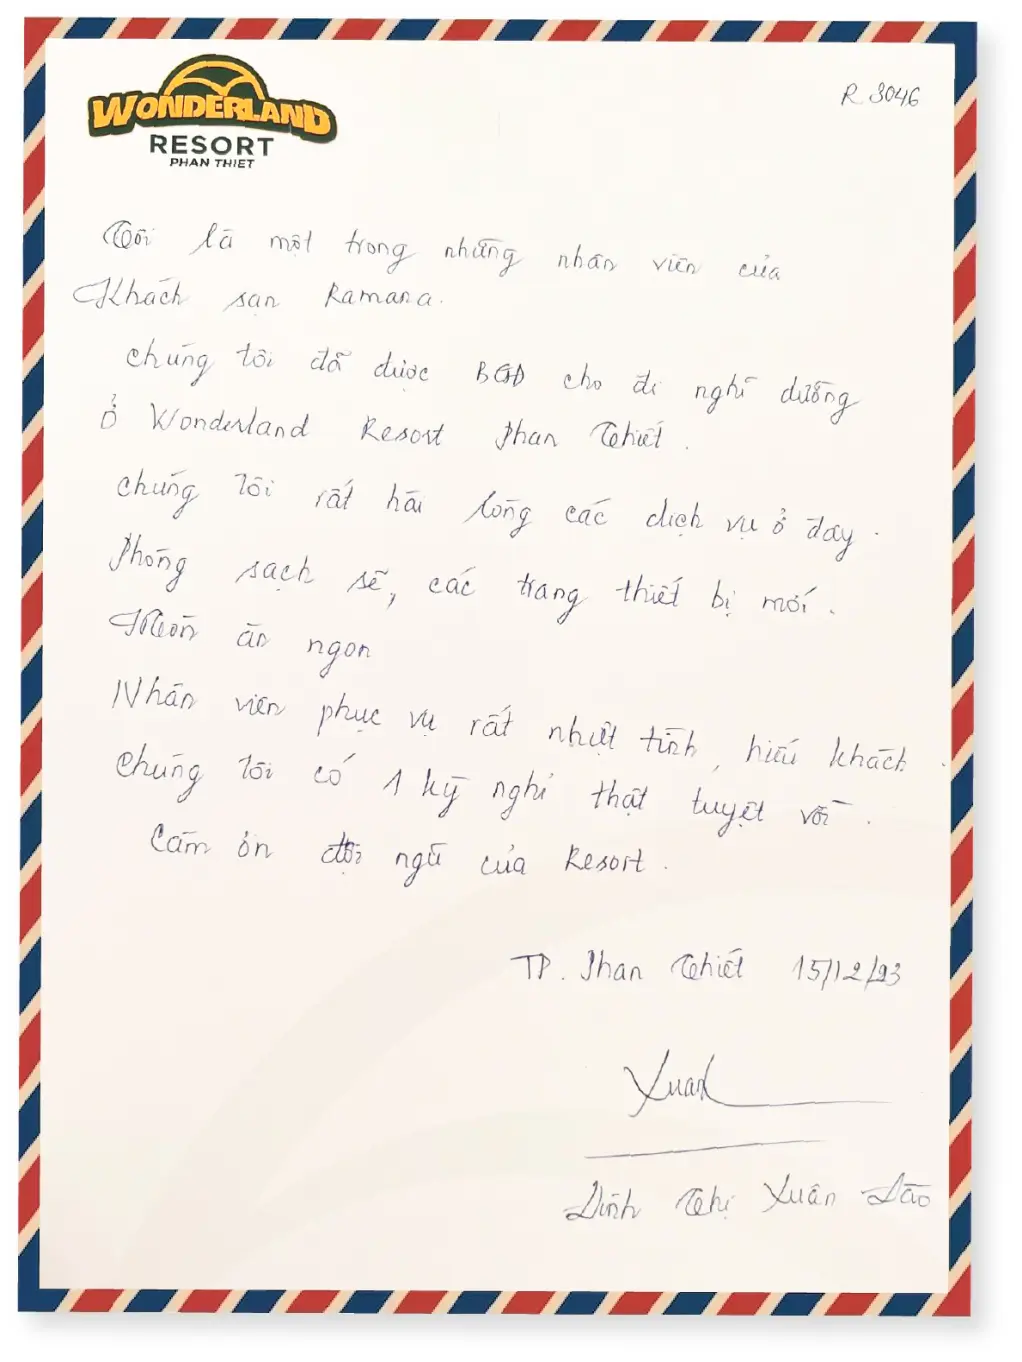 WONDERLAND
RESORT
PHAN THIET
R 3046
Tôi là một trong những nhân viên của
Khách sạn Ramana.
Chúng tôi đã được BGĐ cho đi nghỉ dưỡng
ở Wonderland Resort Phan Thiết.
Chúng tôi rất hài lòng các dịch vụ ở đây.
Phòng sạch sẽ, các trang thiết bị mới.
Món ăn ngon
Nhân viên phục vụ rất nhiệt tình, hiếu khách.
Chúng tôi có 1 kỳ nghỉ thật tuyệt vời.
Cám ơn đội ngũ của Resort.
TP. Phan Thiết 15/12/23
Xuan
Đinh Thị Xuân Đào